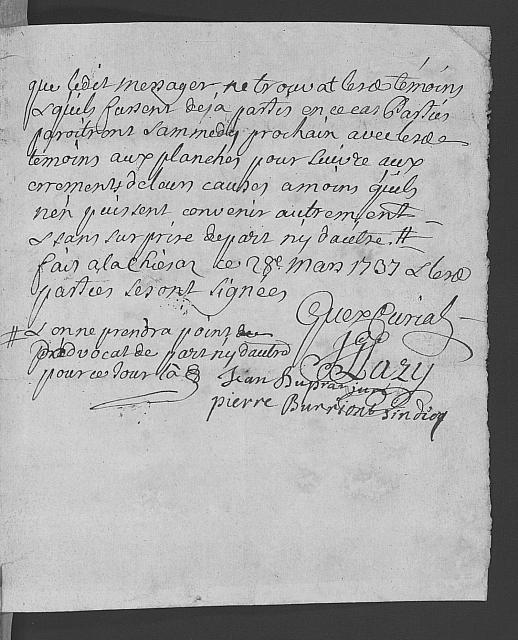 que ledit messager ne trouvat lesd témoins
& quils fussent deja partis en ce cas Parties
paroitront sammedy prochain avec lesd
temoins aux planches pour suivre aux
errements de leurs causes a moins quils
nen puissent convenir autrement
& sans surprise de part ny dautre #
fait a la Chiesaz ce 28e Mars 1737 & lesd
parties se sont signées
# & on ne prendra point
advocat de part ny dautre
pour ce jour là
Curial
Jean Dupraz juré
pierre Sindiq